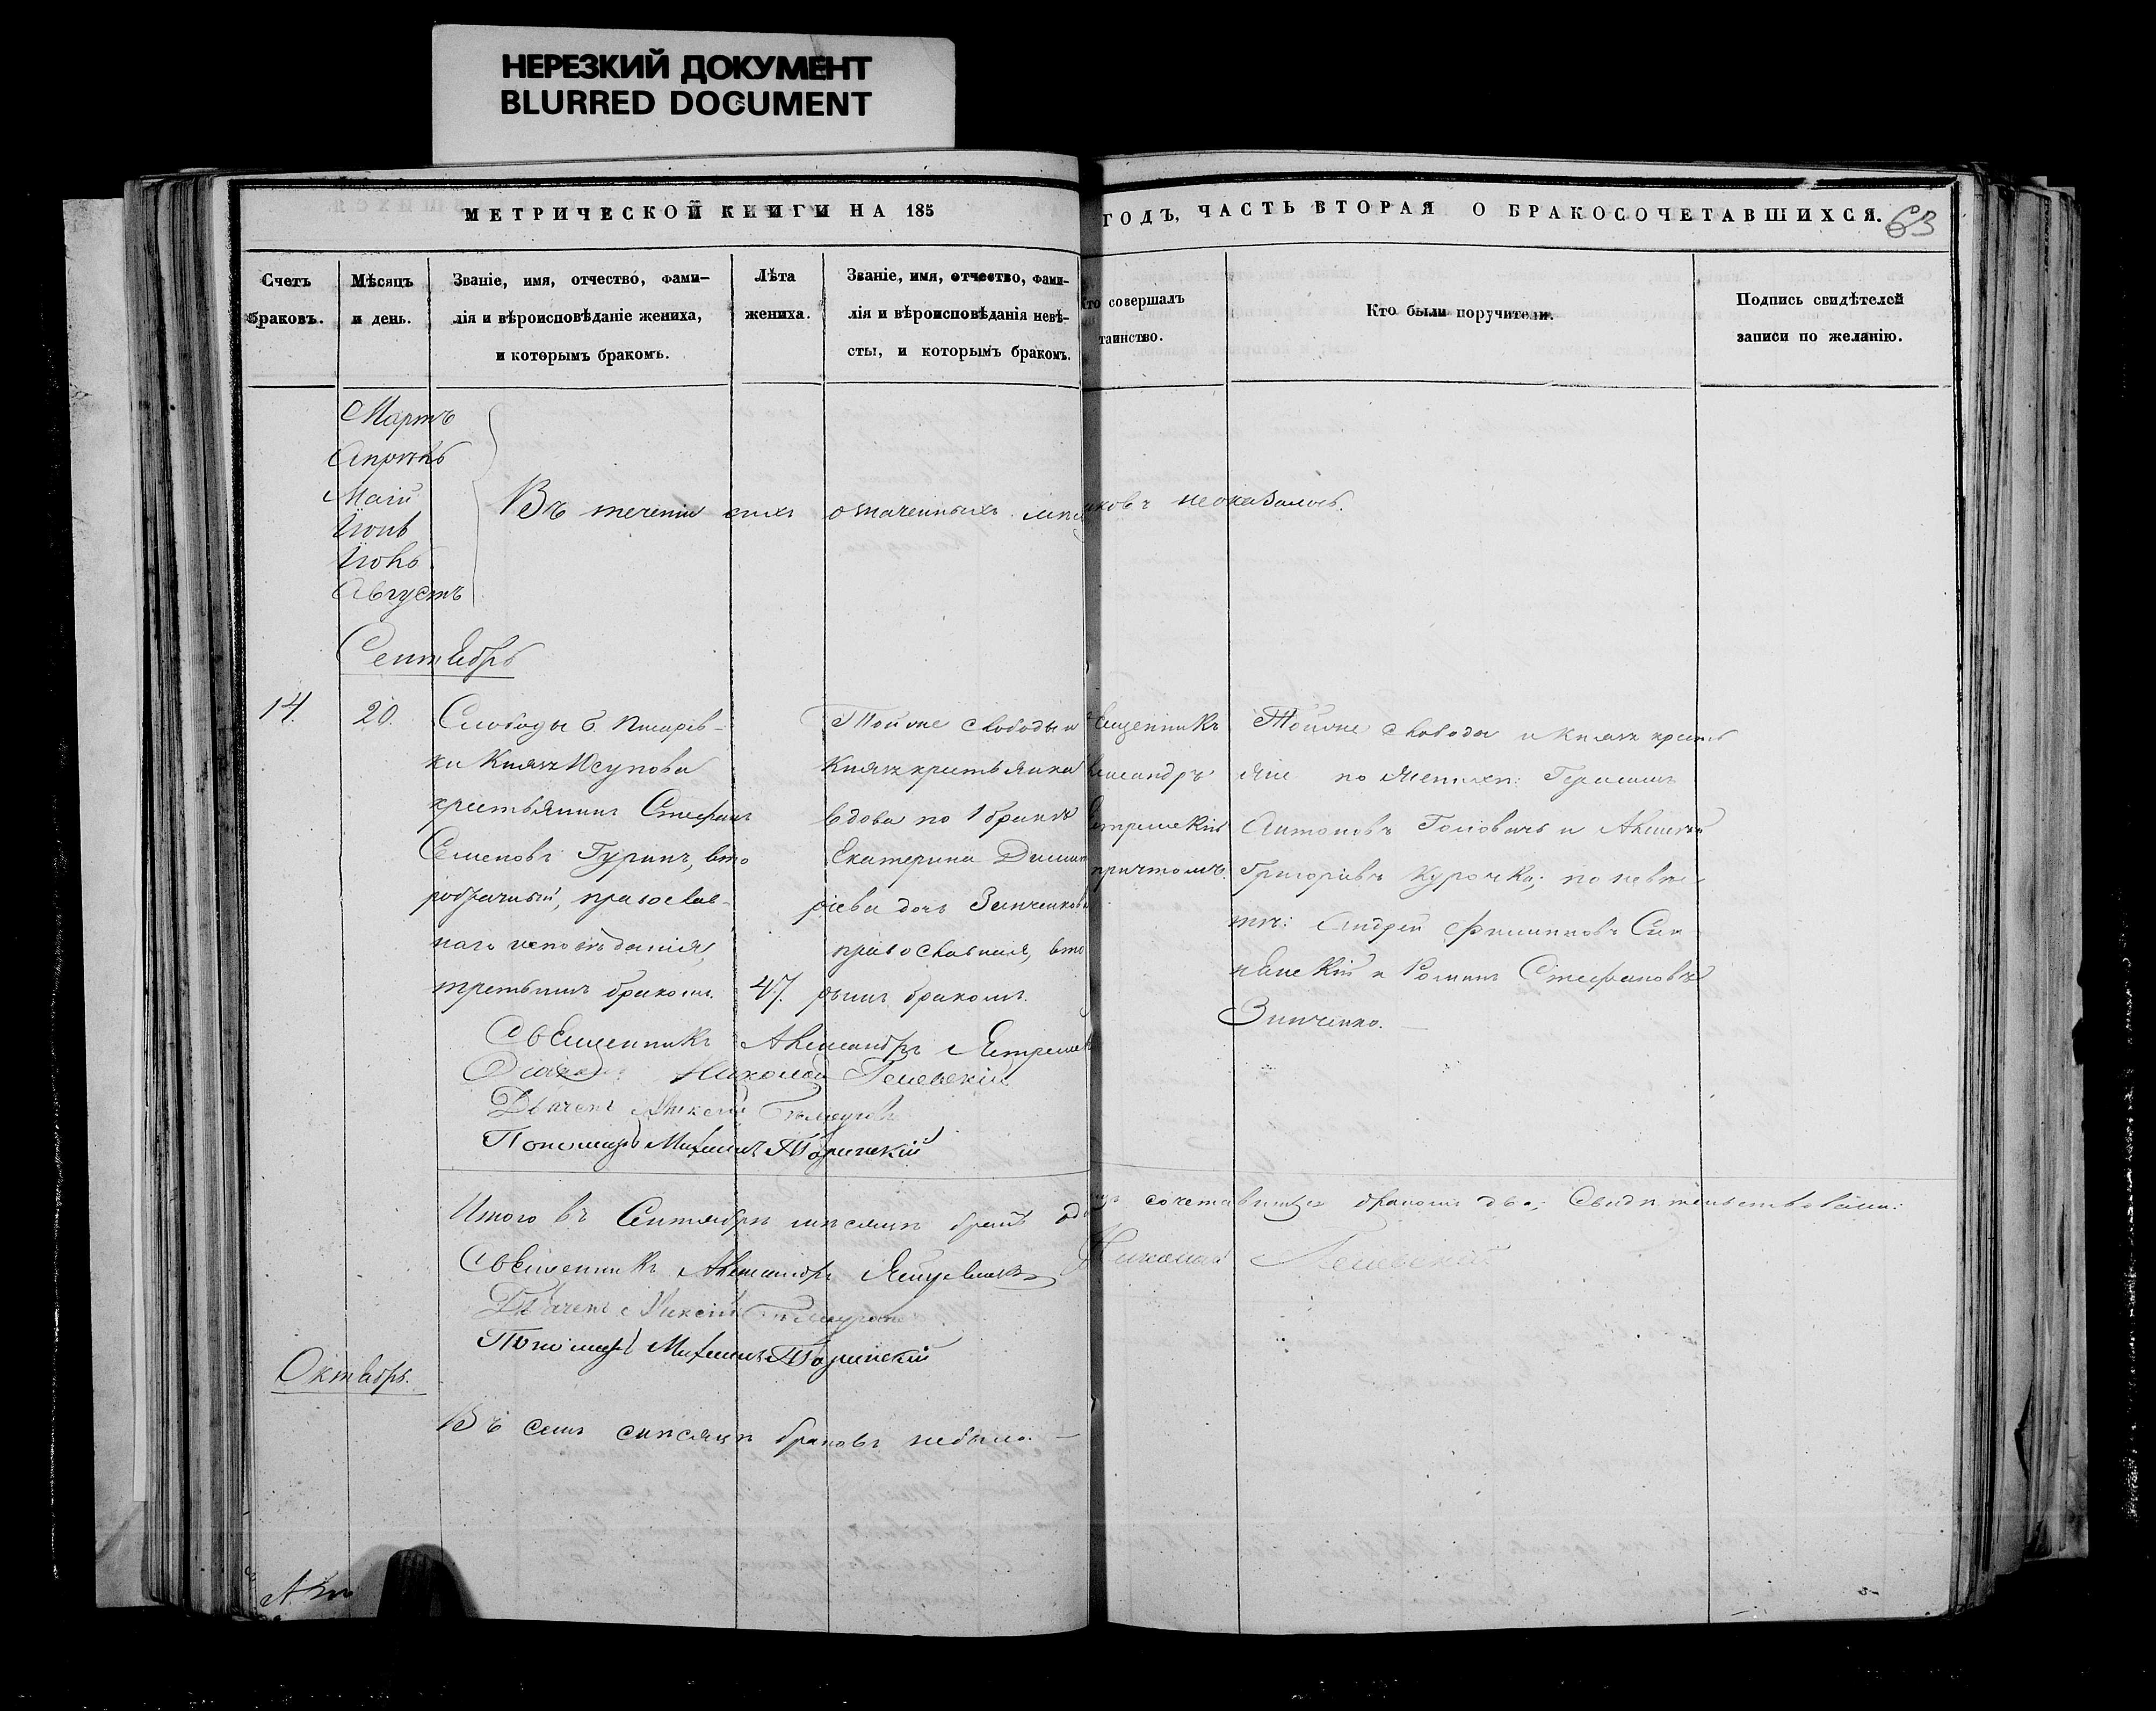 НЕРЕЗКИЙ ДОКУМЕНТ
BLURRED DOCUMENT
МЕТРИЧЕСКОЙ КНИГИ НА 185
ГОДЪ, ЧАСТЬ ВТОРАЯ О БРАКОСОЧЕТАВШИХСЯ.
63
Счетъ
браковъ.
Мѣсяцъ
и день.
Званіе, имя, отчество, фами-
лія и вѣроисповѣданіе жениха,
и которымъ бракомъ.
Лѣта
жениха.
Званіе, имя, отчество, фами-
лія и вѣроисповѣданія невѣ-
сты, и которымъ бракомъ.
Кто совершалъ
таинство.
Кто были поручители.
Подпись свидѣтелей
записи по желанію.
Мартъ
Апрѣль
Маій
Іюнь
Іюль
Августъ
Въ теченіи сихъ означенныхъ неоказалось.
Сентябрь
14.
20.
Слободы б. Писарев-
ки Князя Юсупова
крестьянинъ Стефанъ
Семеновъ Гуринъ, вто
робрачный, православ-
наго исповѣданія,
третьимъ бракомъ.
47.
Тойже слободы и
Князя крестьянка
вдова по 1 бракѣ
Екатерина Димит
ріева дочь Зинченкова
православная, вто
рымъ бракомъ.
Священникъ
Александръ
Ястремскій
причтомъ.
Тойже слободы и Князя кресть
яне по женихѣ: Герасимъ
Антоновъ и Алексѣй
Григорьевъ Курочка; по невѣс
тѣ: Андрей Филиповъ Син
явскій и Романъ Стефановъ
Зинченко.
Священникъ Александръ Ястремскій
Діаконъ Николай
Дьячекъ Алексій
Пономарь Михаилъ
Итого въ Сентябрѣ мѣсяцѣ бракъ одинъ сочетавшихся бракомъ два; Свидѣтельствовали:
Священникъ Александръ Ястремскій
Николай
Дьячекъ Алексій
Пономарь Михаилъ
Октябрь.
Въ семъ мѣсяцѣ браковъ небыло.